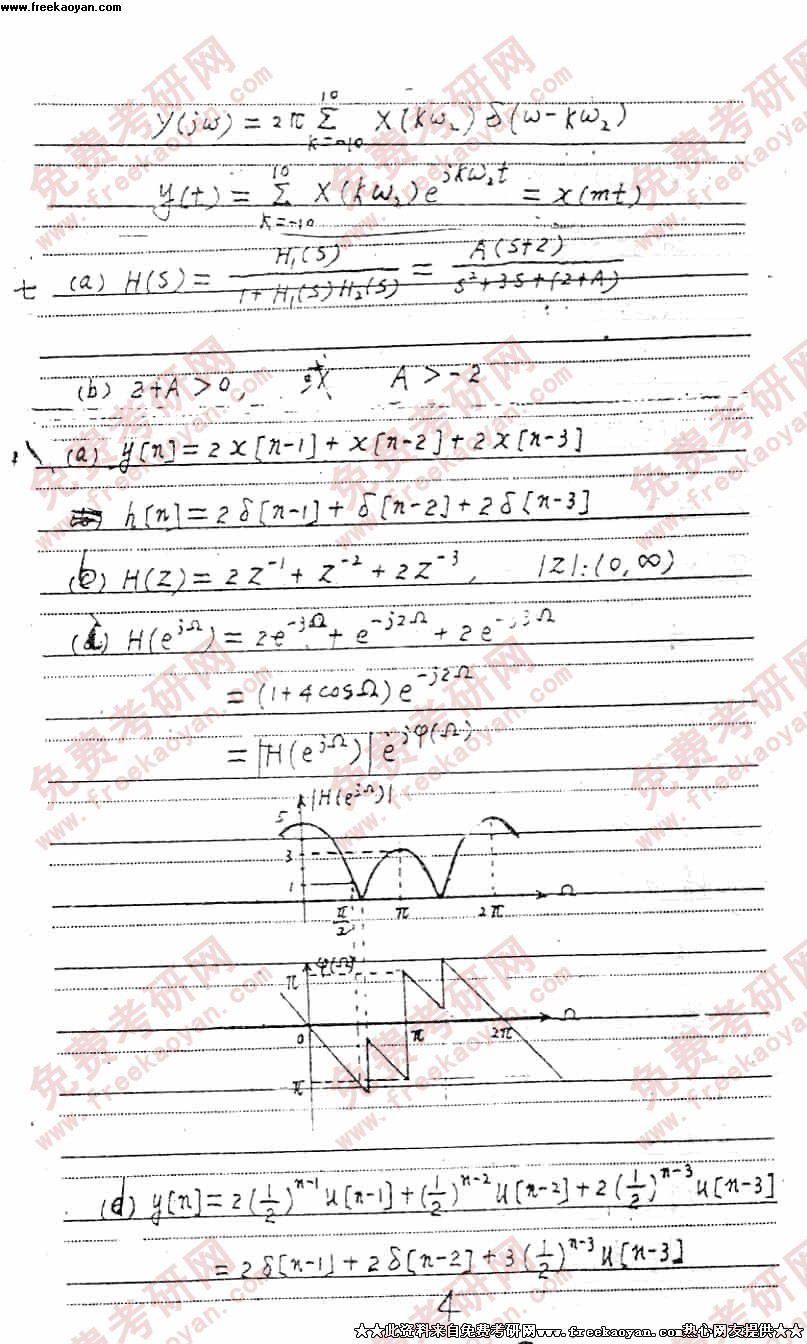 www.freekaoyan.com
Y(jω) = 2π Σ_{k=-10}^{10} X(kω₂) δ(ω-kω₂)
y(t) = Σ_{k=-10}^{10} X(kω₂) e^{jkω₂t} = x(mt)
七 (a) H(S) = H₁(S) / (1+H₁(S)H₂(S)) = A(S+2) / (S²+3S+(2+A))
(b) 2+A > 0, 求 A > -2
八 (a) y[n] = 2x[n-1] + x[n-2] + 2x[n-3]
h[n] = 2δ[n-1] + δ[n-2] + 2δ[n-3]
(b) H(Z) = 2Z⁻¹ + Z⁻² + 2Z⁻³, |Z|:(0,∞)
H(e^{jΩ}) = 2e^{-jΩ} + e^{-j2Ω} + 2e^{-j3Ω}
= (1+4cosΩ) e^{-j2Ω}
= |H(e^{jΩ})| e^{jφ(Ω)}
|H(e^{jΩ})|
5
3
1
π/2 π 2π Ω
φ(Ω)
π
0 π 2π Ω
π
(d) y[n] = 2(1/2)^{n-1} u[n-1] + (1/2)^{n-2} u[n-2] + 2(1/2)^{n-3} u[n-3]
= 2δ[n-1] + 2δ[n-2] + 3(1/2)^{n-3} u[n-3]
4
★★此资料来自免费考研网www.freekaoyan.com热心网友提供★★
免费考研网
www.freekaoyan.com